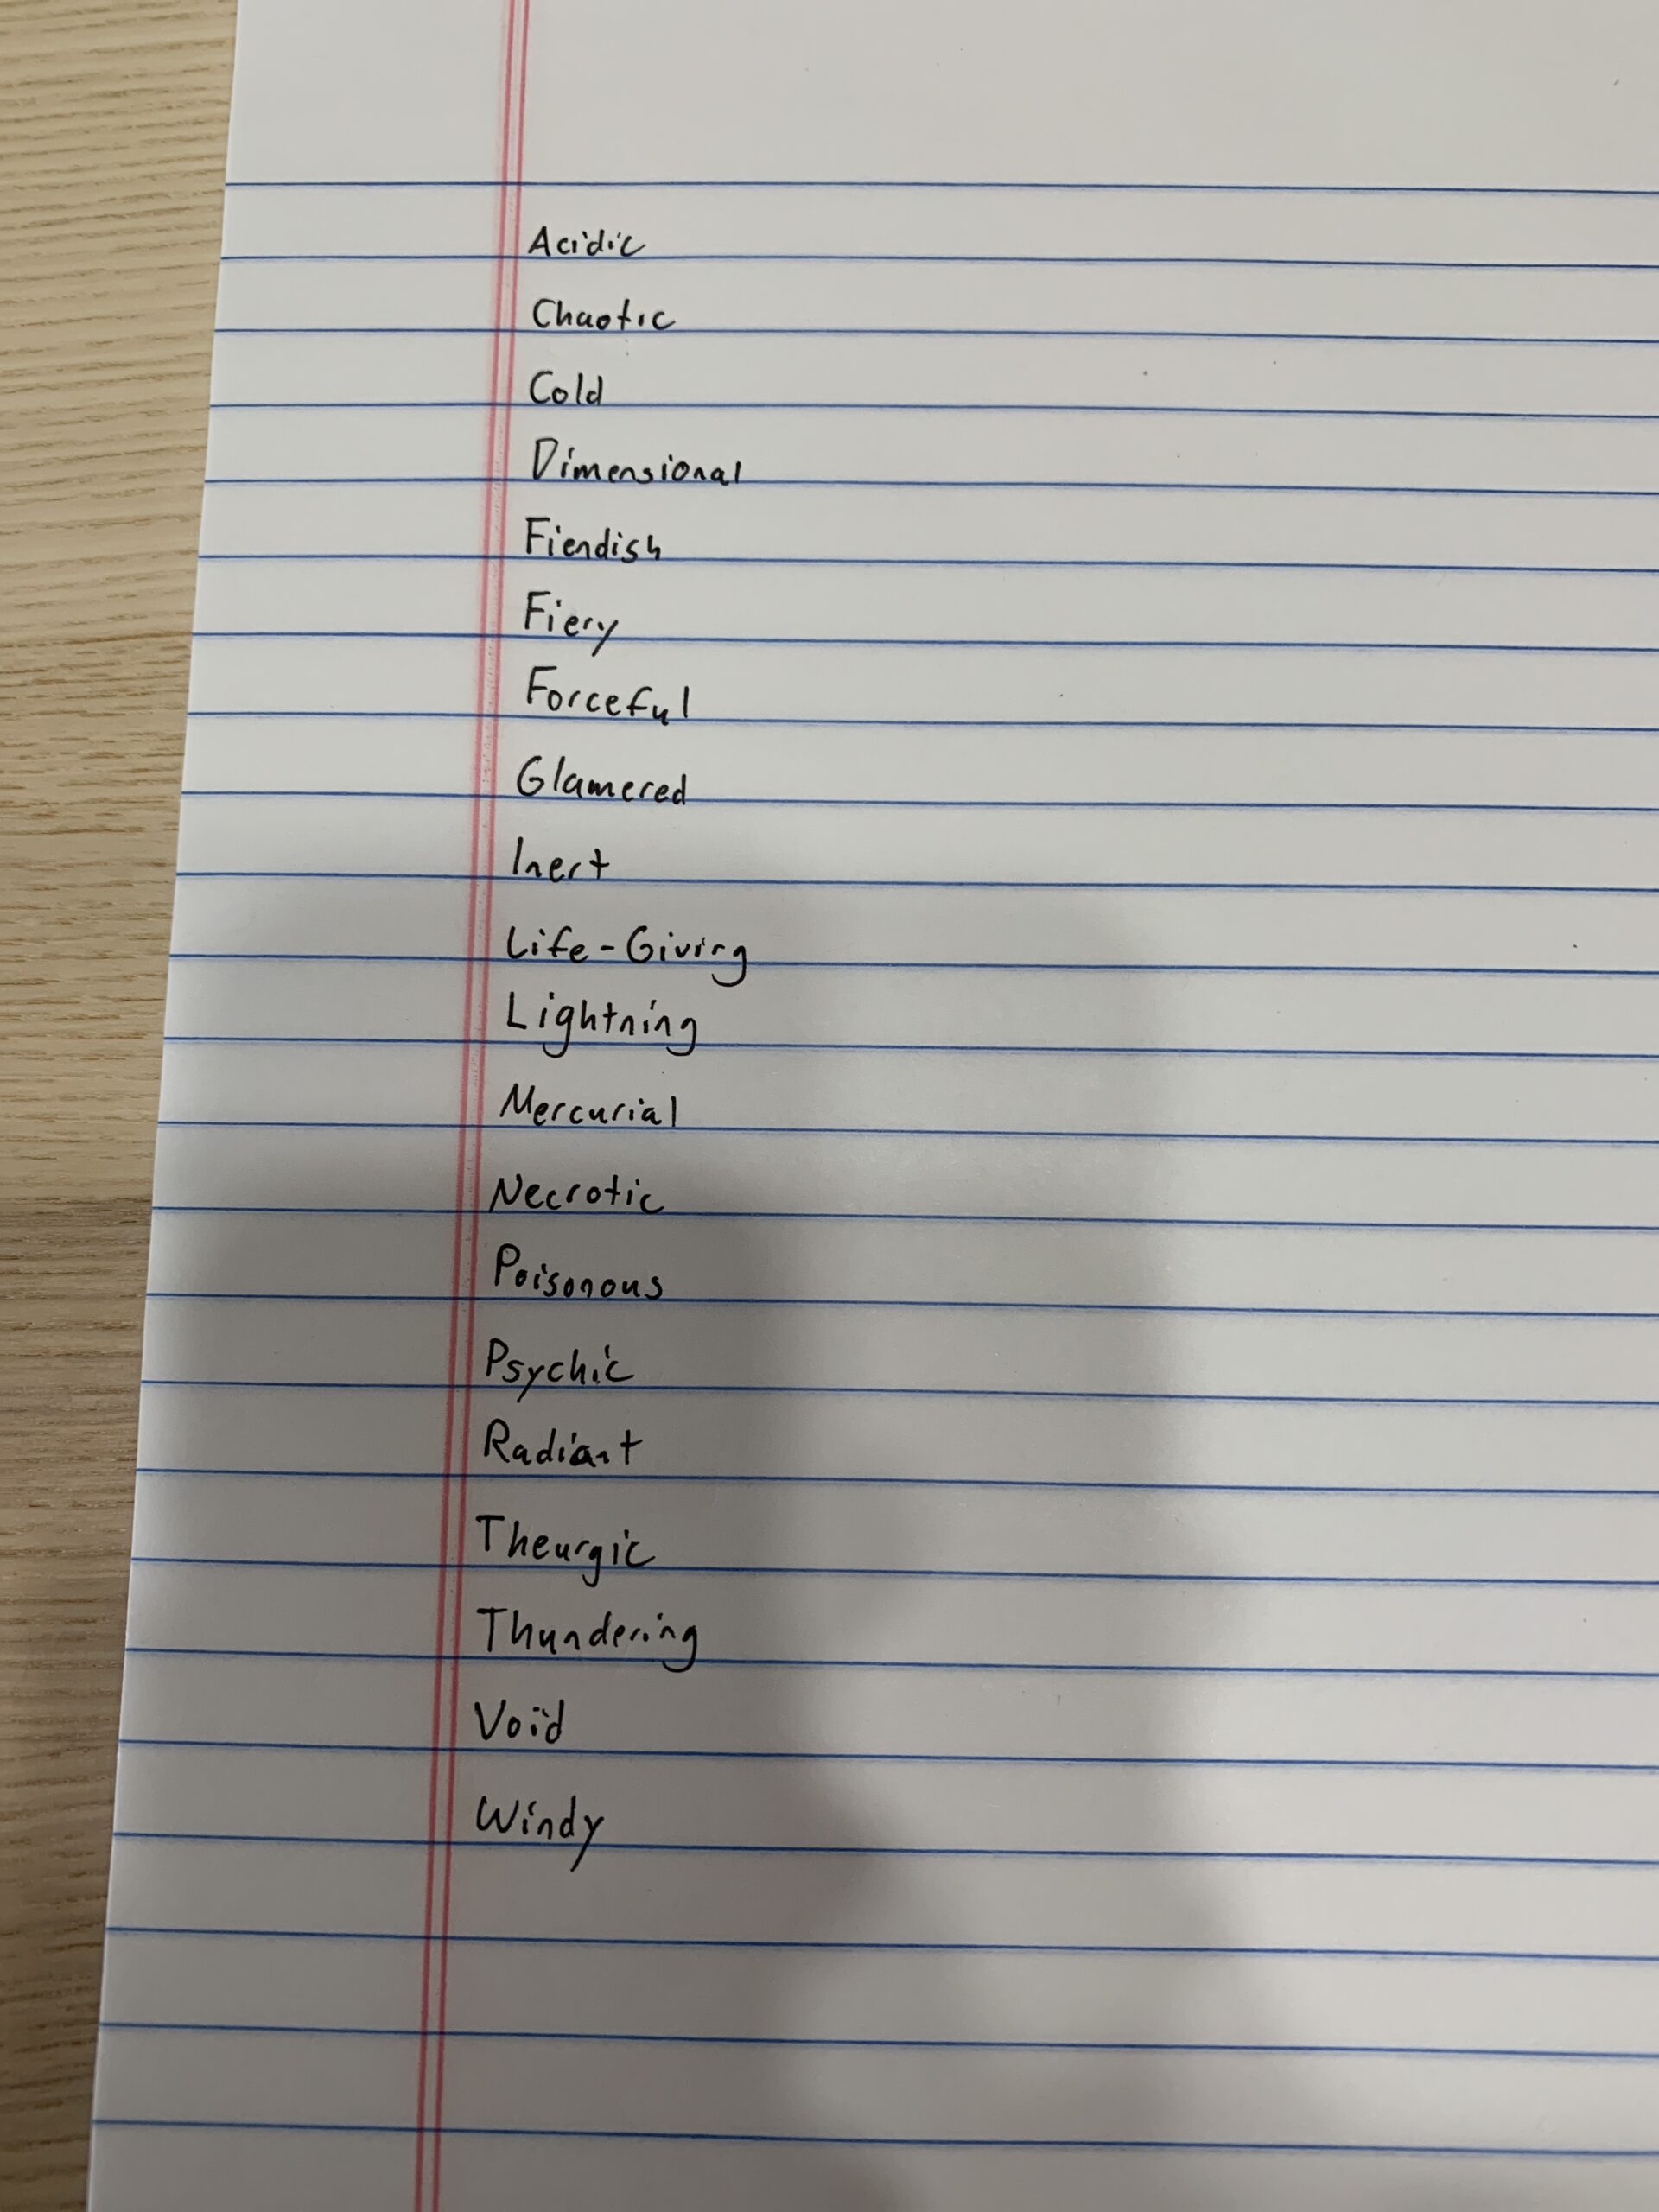 Acidic
Chaotic
Cold
Dimensional
Fiendish
Fiery
Forceful
Glamered
Inert
Life-Giving
Lightning
Mercurial
Necrotic
Poisonous
Psychic
Radiant
Theurgic
Thundering
Void
Windy